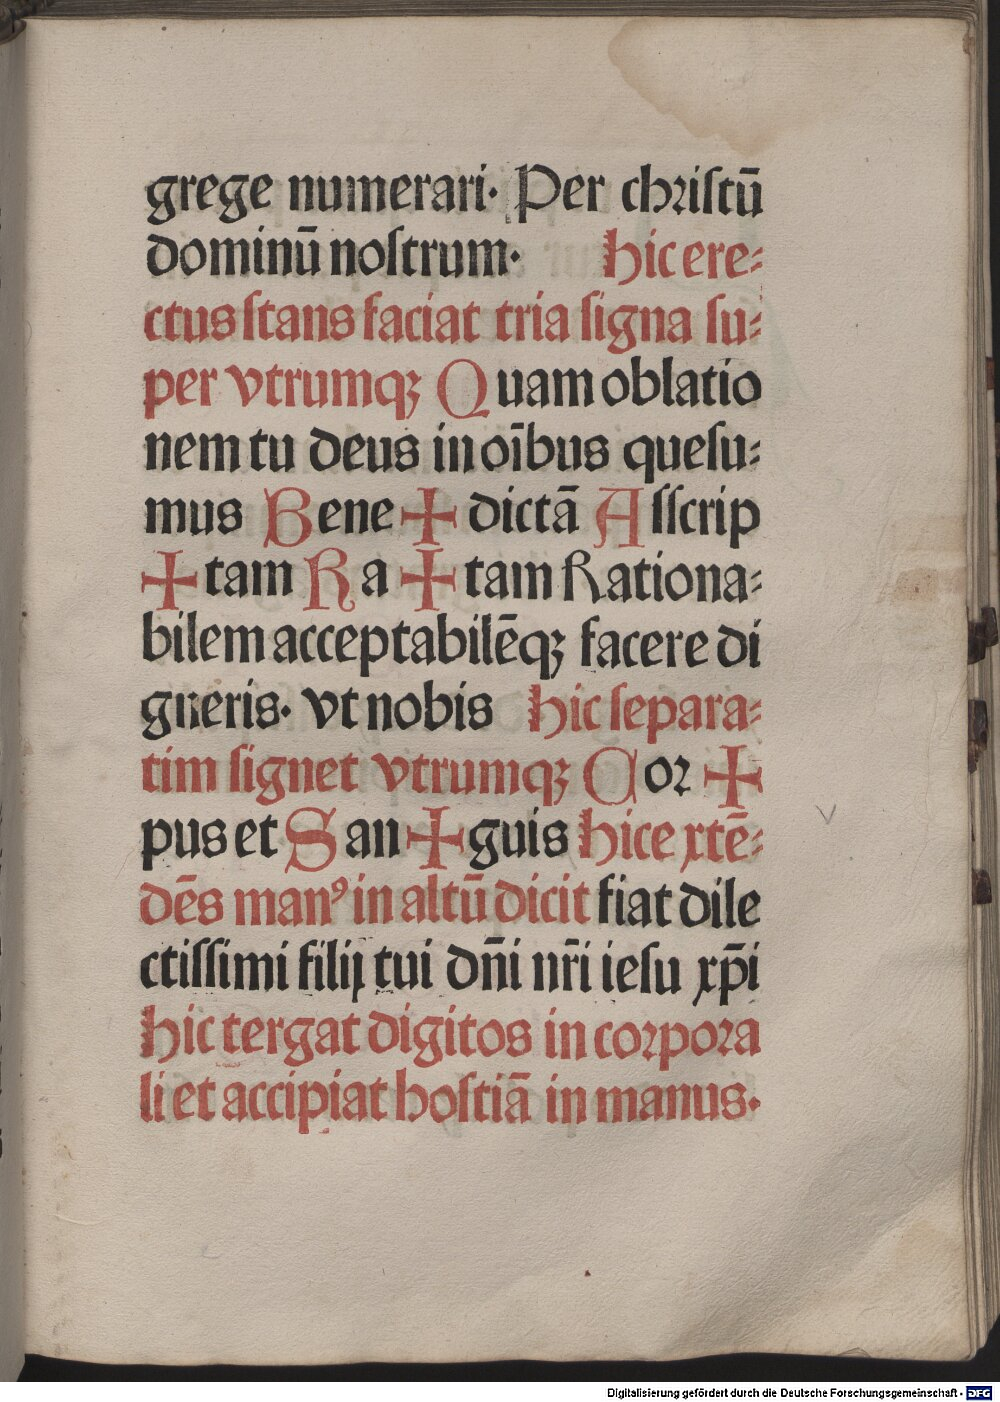 grege numerari. Per chriſtū
dominū noſtrum. Hic ere⸗
ctus ſtans faciat tria ſigna ſu⸗
per vtrumqꝫ Quam oblatio
nem tu deus in oībus queſu⸗
mus Bene ✚ dictā Aſſcrip
✚ tam Ra ✚ tam Rationa⸗
bilem acceptabilēqꝫ facere di
gneris. vt nobis Hic ſepara⸗
tim ſignet vtrumqꝫ Coꝛ ✚
pus et San ✚ guis Hic extē⸗
dēs manꝰ in altū dicit fiat dile
ctiſſimi filij tui dn̄i nr̄i ieſu xp̄i
Hic tergat digitos in coꝛpoꝛa
li et accipiat hoſtiā in manus.
Digitalisierung gefördert durch die Deutsche Forschungsgemeinschaft - DFG